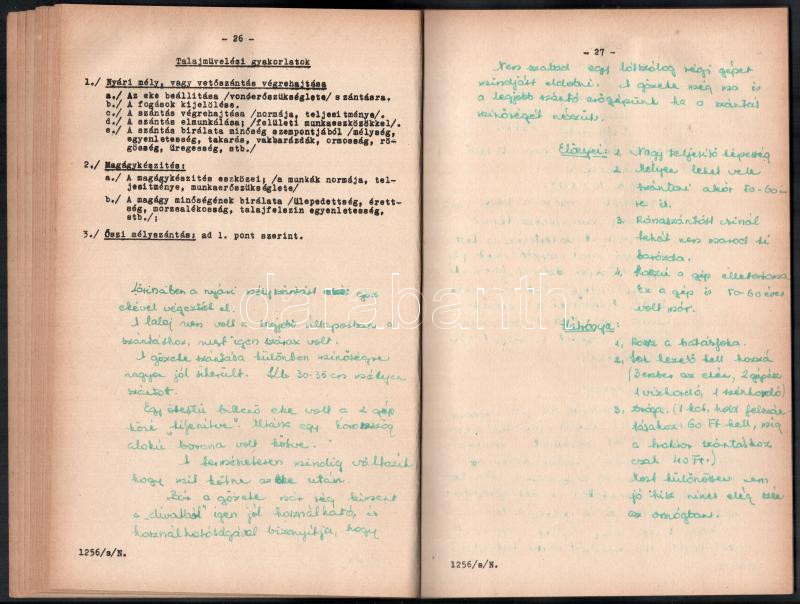 - 26 -
Talajmüvelési gyakorlatok
1./ Nyári mély, vagy vetőszántás végrehajtása
a./ Az eke beállitása /vonderőszükséglete/ szántásra.
b./ A fogások kijelölése.
c./ A szántás végrehajtása /normája, teljesitménye/.
d./ A szántás elmunkálása; felületi munkaeszközökkel/.
e./ A szántás birálata minőség szempontjából /mélység,
egyenletesség, takarás, vakbarázdák, ormosság, rö-
gösség, üregesség, stb./
2./ Magágykészités:
a./ A magágykészités eszközei; /a munkák normája, tel-
jesitménye, munkaerőszükséglete/
b./ A magágy minőségének birálata /ülepedettség, érett-
ség, morzsalékosság, talajfelszin egyenletesség,
stb./;
3./ Őszi mélyszántás: ad 1. pont szerint.
a nyári mélyszántást gőz-
ekével végezték el.
A talaj nem volt a legjobb állapotban a
szántáshoz, mert igen száraz volt.
A gőzeke szántása különben minőségre
nagyon jól sikerült. Kb 30-35 cm mélyen
szántott.
Egy ötestű billenő eke volt a 2 gép
közé "kifeszítve". Utána egy háromszög
alakú borona volt kötve.
A természetesen mindig változik
hogy mit kötne az eke után.
Bár a gőzeke már rég kiment
a "divatból" igen jól használható, és
használhatóságával bizonyítja, hogy
1256/s/N.
- 27 -
Nem szabad egy látszólag régi gépet
mindjárt eldobni. A gőzeke még ma is
a legjobb szántó erőgépünk ha a szántás
minőségét nézzük.
Előnyei: 1. Nagy teljesítő képesség
2. Mélyen lehet vele
szántani akár 50-60 cm-
re is.
3. Rónaszántást csinál
tehát nem marad ki
barázda.
4. Hosszú a gép élettartama
Ez a gép is 50-60 éves
volt már.
Hátránya:
1, Rossz a hatásfoka.
2, Sok kezelő kell hozzá
(3 ember az ekén, 2 gépész
1 vízhordó, 1 szénhordó)
3. Drága. (1 kat. hold felszán-
tásához 60 Ft kell, míg
a traktor szántáshoz
csak 40 Ft.)
Most különösen nem
jó hisz nincs elég szén
az országban.
1256/s/N.
darabanth